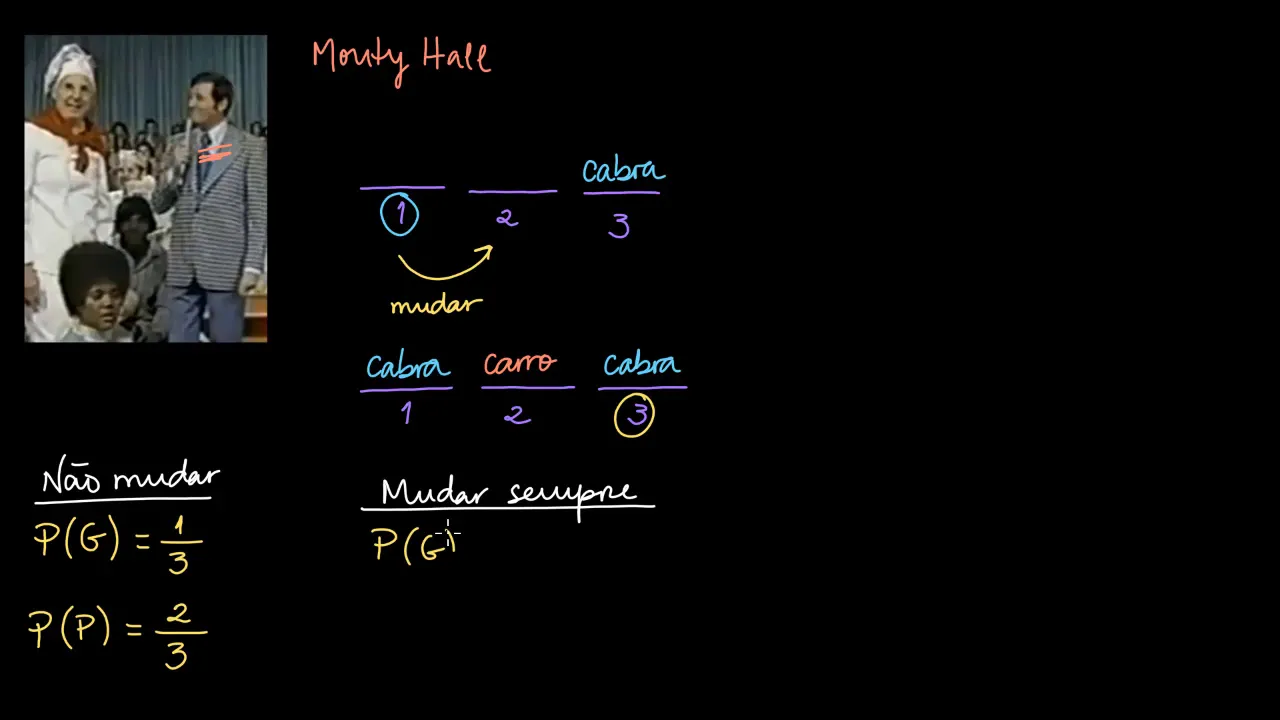 Monty Hall
Cabra
1 2 3
mudar
Cabra Carro Cabra
1 2 3
Não mudar
P(G) = 1/3
P(P) = 2/3
Mudar sempre
P(G)